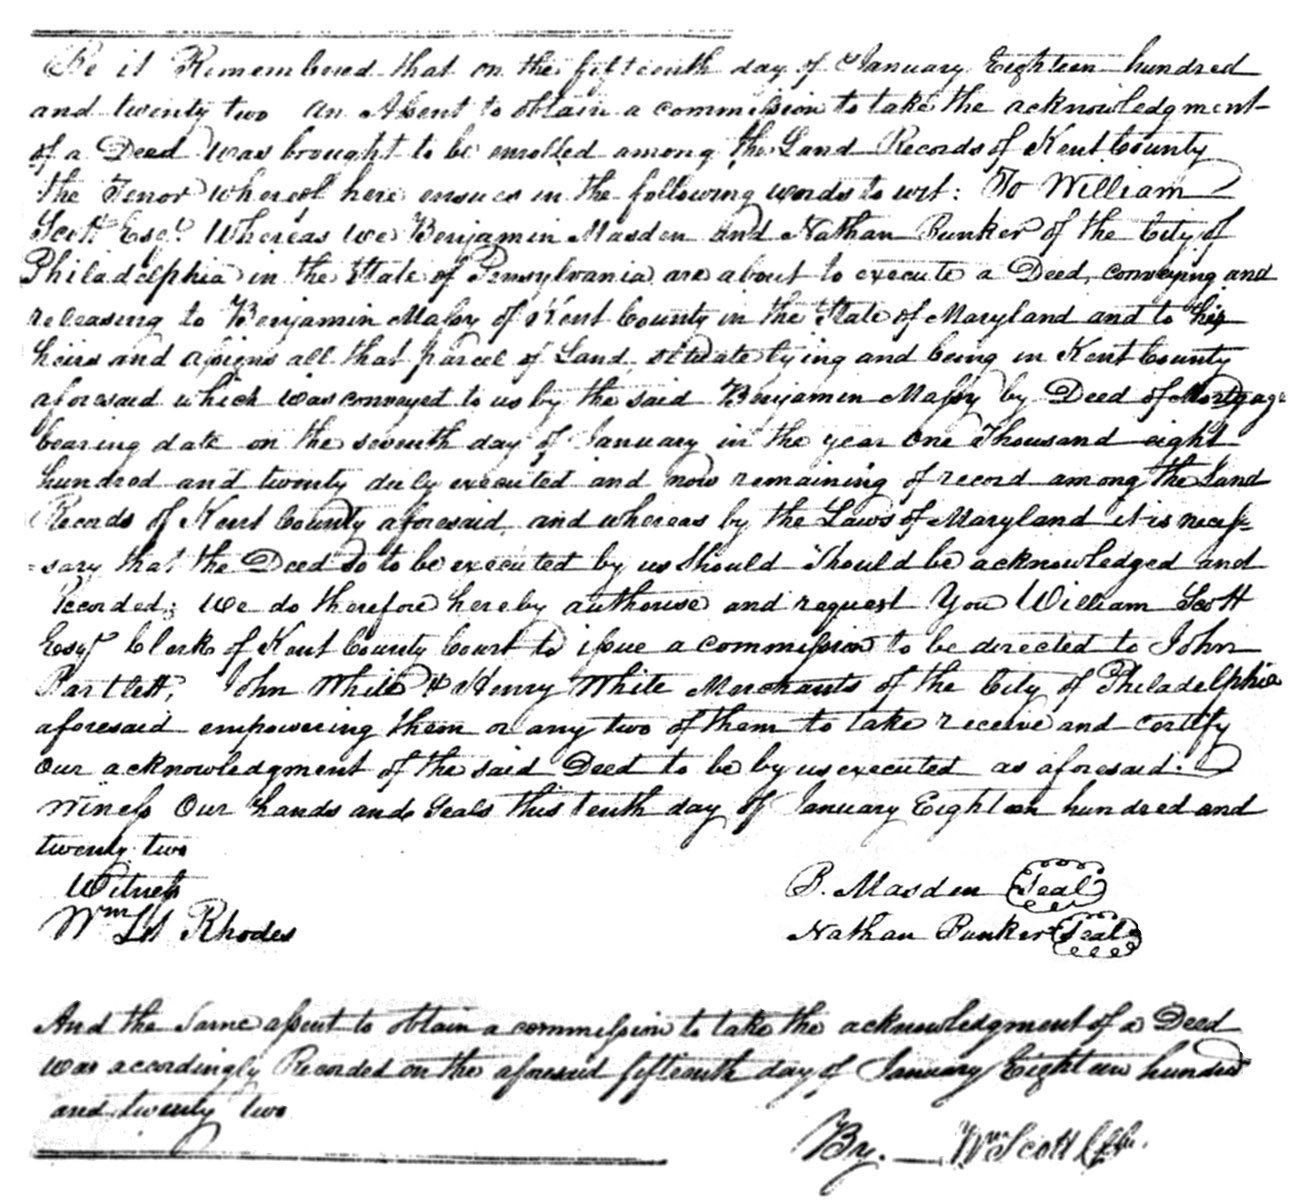 Be it Remembered that on the fifteenth day of January Eighteen hundred
and twenty two an Assent to obtain a commission to take the acknowledgment
of a Deed was brought to be enrolled among the Land Records of Kent County
the Tenor whereof here ensues in the following words to wit: To William
Scott Esqr. Whereas we Benjamin Masden and Nathan Bunker of the City of
Philadelphia in the State of Pennsylvania are about to execute a Deed, conveying and
releasing to Benjamin Massy of Kent County in the State of Maryland and to his
heirs and assigns all that parcel of Land, situate lying and being in Kent County
aforesaid which was conveyed to us by the said Benjamin Massy by Deed of Mortgage
bearing date on the seventh day of January in the year One Thousand eight
hundred and twenty duly executed and now remaining of record among the Land
Records of Kent County aforesaid and whereas by the Laws of Maryland it is neces-
=sary that the Deed so to be executed by us should should be acknowledged and
Recorded; We do therefore hereby authorise and request You William Scott
Esqr. Clerk of Kent County Court to issue a commission to be directed to John
Bartlett, John White & Henry White Merchants of the City of Philadelphia
aforesaid empowering them or any two of them to take receive and certify
our acknowledgment of the said Deed to be by us executed as aforesaid.
Witness Our hands and Seals this tenth day of January Eighteen hundred and
twenty two
Witness
B. Masden Seal
Wm Rhodes
Nathan Bunker Seal
And the Same assent to obtain a commission to take the acknowledgment of a Deed
was accordingly Recorded on the aforesaid fifteenth day of January Eighteen hundred
and twenty two
By. Wm Scott Clk.